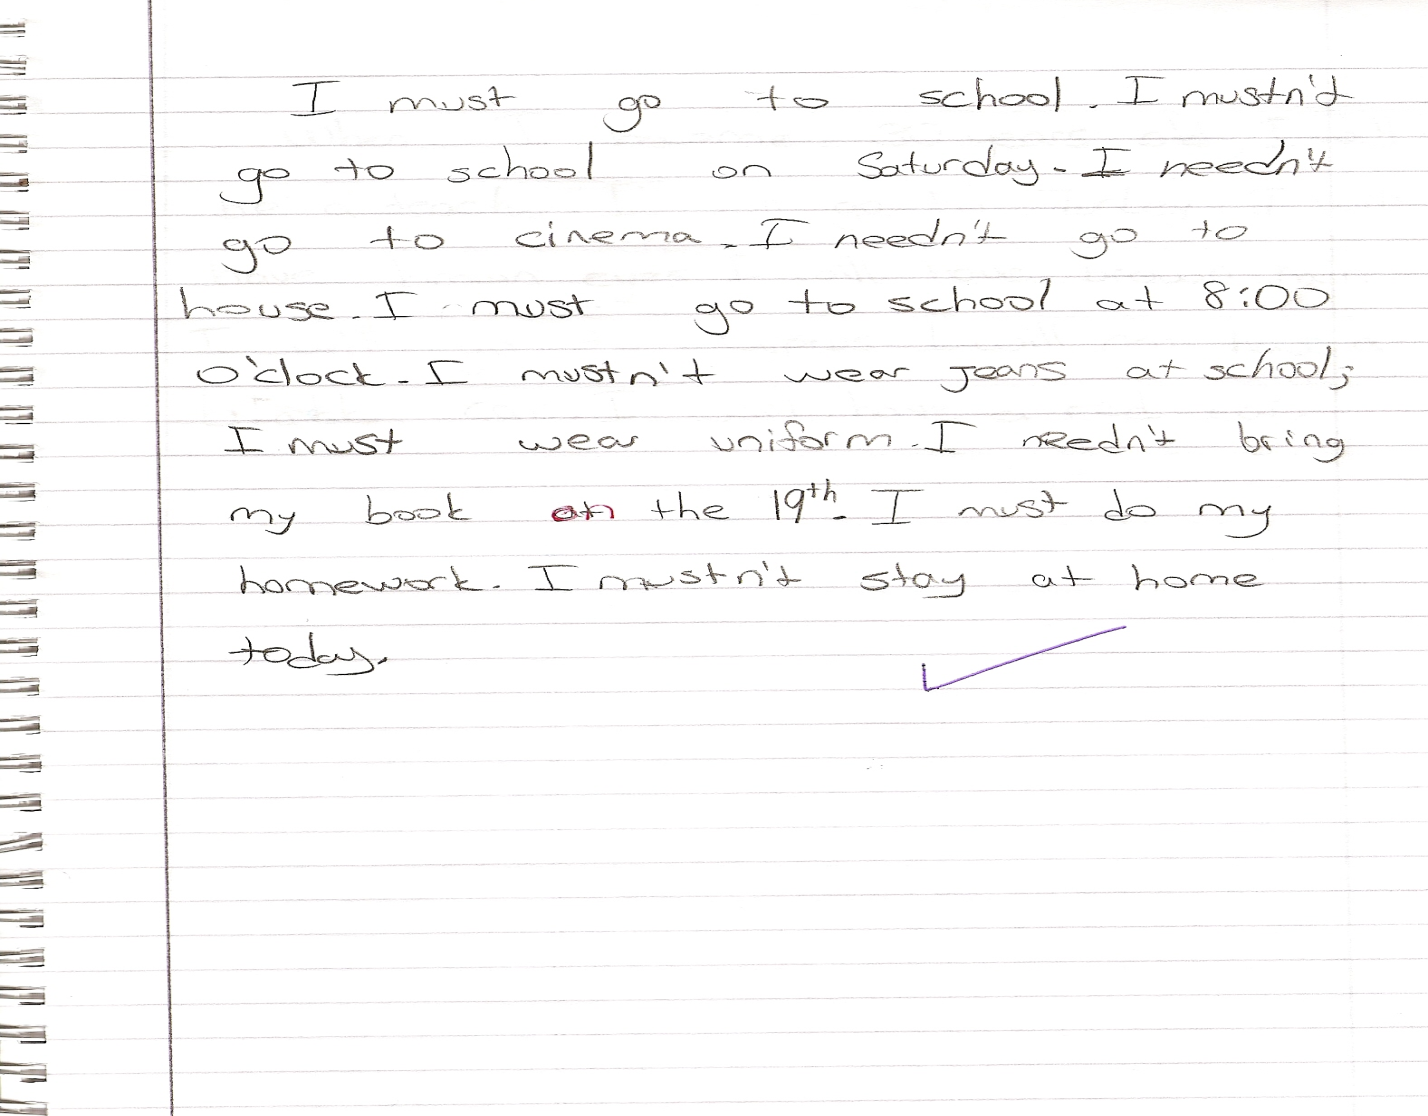 I must go to school. I mustn't
go to school on Saturday. I needn't
go to cinema. I needn't go to
house. I must go to school at 8:00
O'clock. I mustn't wear jeans at school;
I must wear uniform. I needn't bring
my book on the 19th. I must do my
homework. I mustn't stay at home
today.